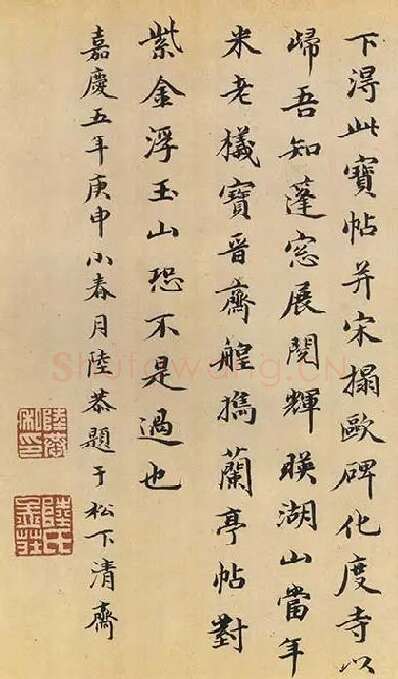 下淂此寶帖并宋搨歐碑化度寺以
歸吾知蓬窓展閱輝暎湖山當年
米老檥寶晉齋艎擕蘭亭帖對
紫金浮玉山恐不是過也
嘉慶五年庚申小春月陸恭題于松下清齋
陸恭私印
陸氏孟莊